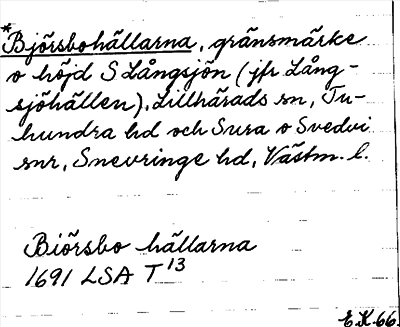 *Björsbohällarna, gränsmärke
o höjd S Långsjön (jfr Lång-
sjöhällen), Lillhärads sn, Tu-
hundra hd och Sura o Svedvi
snr, Snevringe hd, Västm. l.
Biörsbo hällarna
1691 LSA T 13
E.K.66